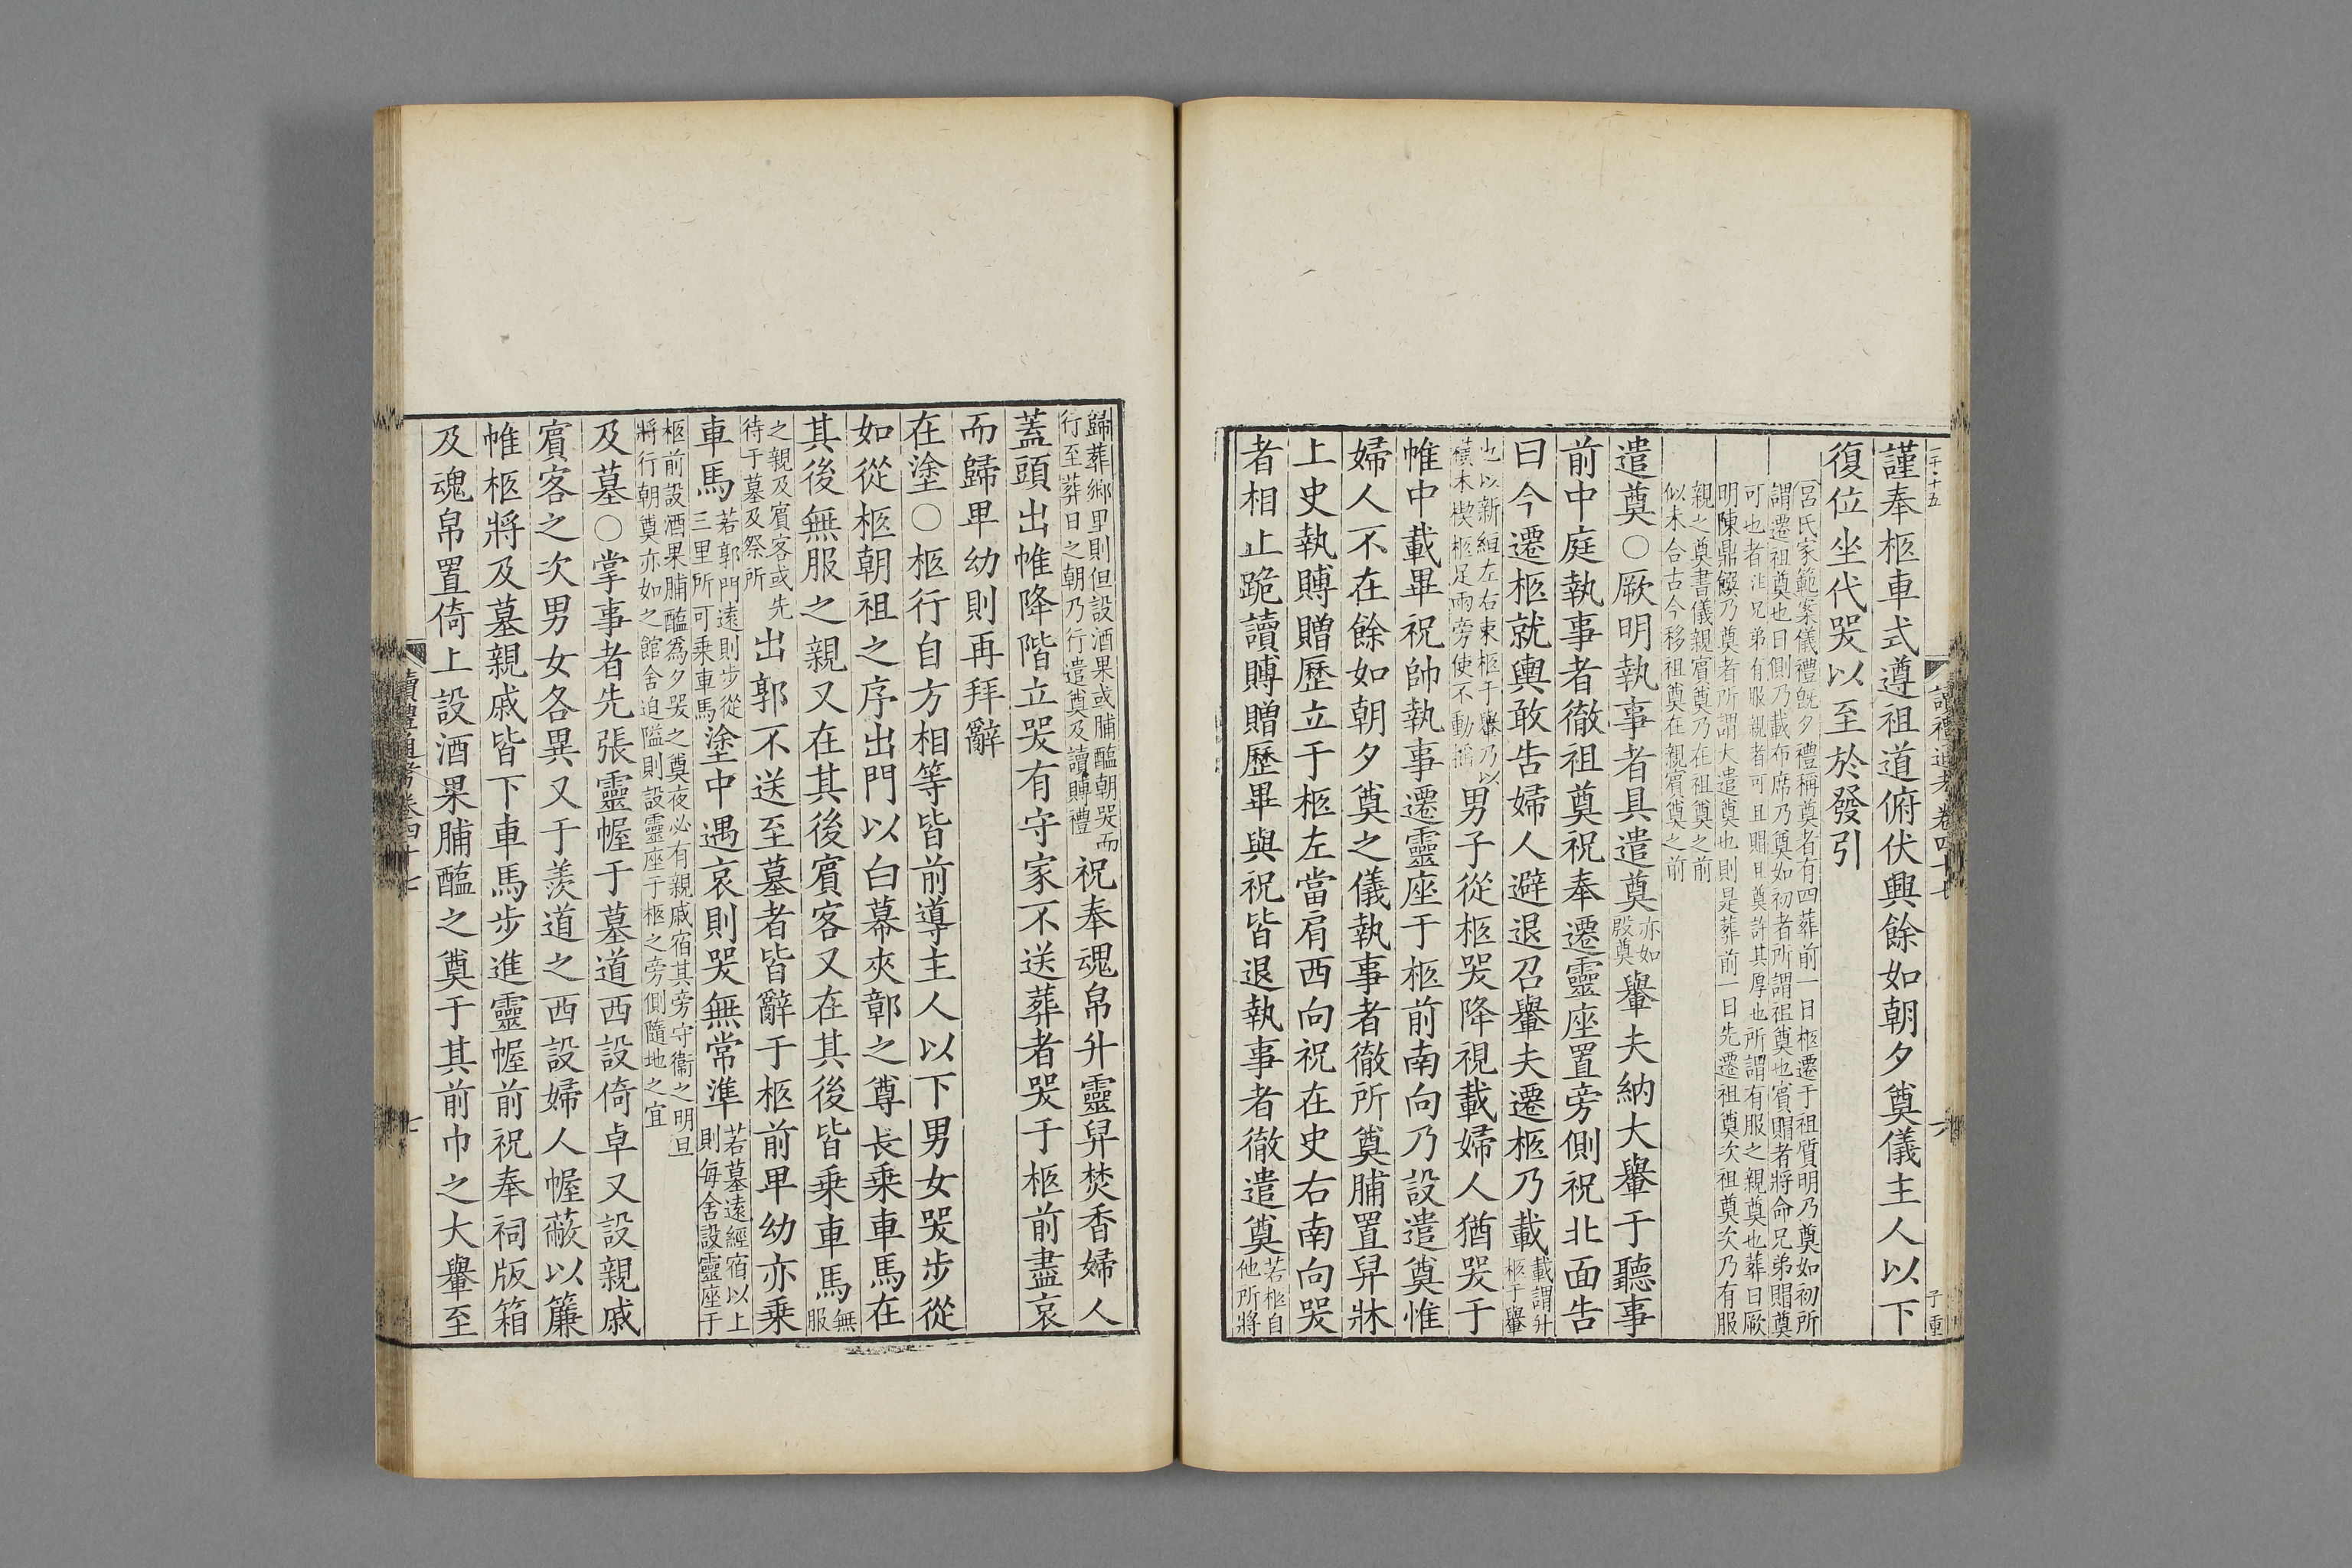 謹奉柩車式遵祖道俯伏興餘如朝夕奠儀主人以下
復位坐代哭以至於發引
呂氏家範案儀禮旣夕禮稱奠者有四葬前一日柩遷于祖質明乃奠如初所
謂遷祖奠也日側乃載布席乃奠如初者所謂祖奠也賓賵者將命兄弟賵奠
可也者注兄弟有服親者可且賵且奠許其厚也所謂有服之親奠也葬日厥
明陳鼎饌乃奠者所謂大遣奠也則是葬前一日先遷祖奠次祖奠次乃有服
親之奠書儀親賓奠乃在祖奠之前
似未合古今移祖奠在親賓奠之前
遣奠○厥明執事者具遣奠亦如
殷奠轝夫納大轝于聽事
前中庭執事者徹祖奠祝奉遷靈座置旁側祝北面告
曰今遷柩就輿敢告婦人避退召轝夫遷柩乃載載謂升
柩于轝
也以新組左右束柩于轝乃以
橫木楔柩足兩旁使不動搖男子從柩哭降視載婦人猶哭于
帷中載畢祝帥執事遷靈座于柩前南向乃設遣奠惟
婦人不在餘如朝夕奠之儀執事者徹所奠脯置舁牀
上史執賻贈歷立于柩左當肩西向祝在史右南向哭
者相止跪讀賻贈歷畢與祝皆退執事者徹遣奠若柩自
他所將
歸葬鄉里則但設酒果或脯醢朝哭而
行至葬日之朝乃行遣奠及讀賻禮祝奉魂帛升靈舁焚香婦人
蓋頭出帷降階立哭有守家不送葬者哭于柩前盡哀
而歸卑幼則再拜辭
在塗○柩行自方相等皆前導主人以下男女哭步從
如從柩朝祖之序出門以白幕夾鄣之尊長乘車馬在
其後無服之親又在其後賓客又在其後皆乘車馬無
服
之親及賓客或先
待于墓及祭所出郭不送至墓者皆辭于柩前卑幼亦乘
車馬若郭門遠則步從
三里所可乘車馬塗中遇哀則哭無常準若墓遠經宿以上
則每舍設靈座于
柩前設酒果脯醢爲夕哭之奠夜必有親戚宿其旁守衞之明旦
將行朝奠亦如之館舍迫隘則設靈座于柩之旁側隨地之宜
及墓○掌事者先張靈幄于墓道西設倚卓又設親戚
賓客之次男女各異又于羨道之西設婦人幄蔽以簾
帷柩將及墓親戚皆下車馬步進靈幄前祝奉祠版箱
及魂帛置倚上設酒果脯醢之奠于其前巾之大轝至
讀禮通考卷四十七
七